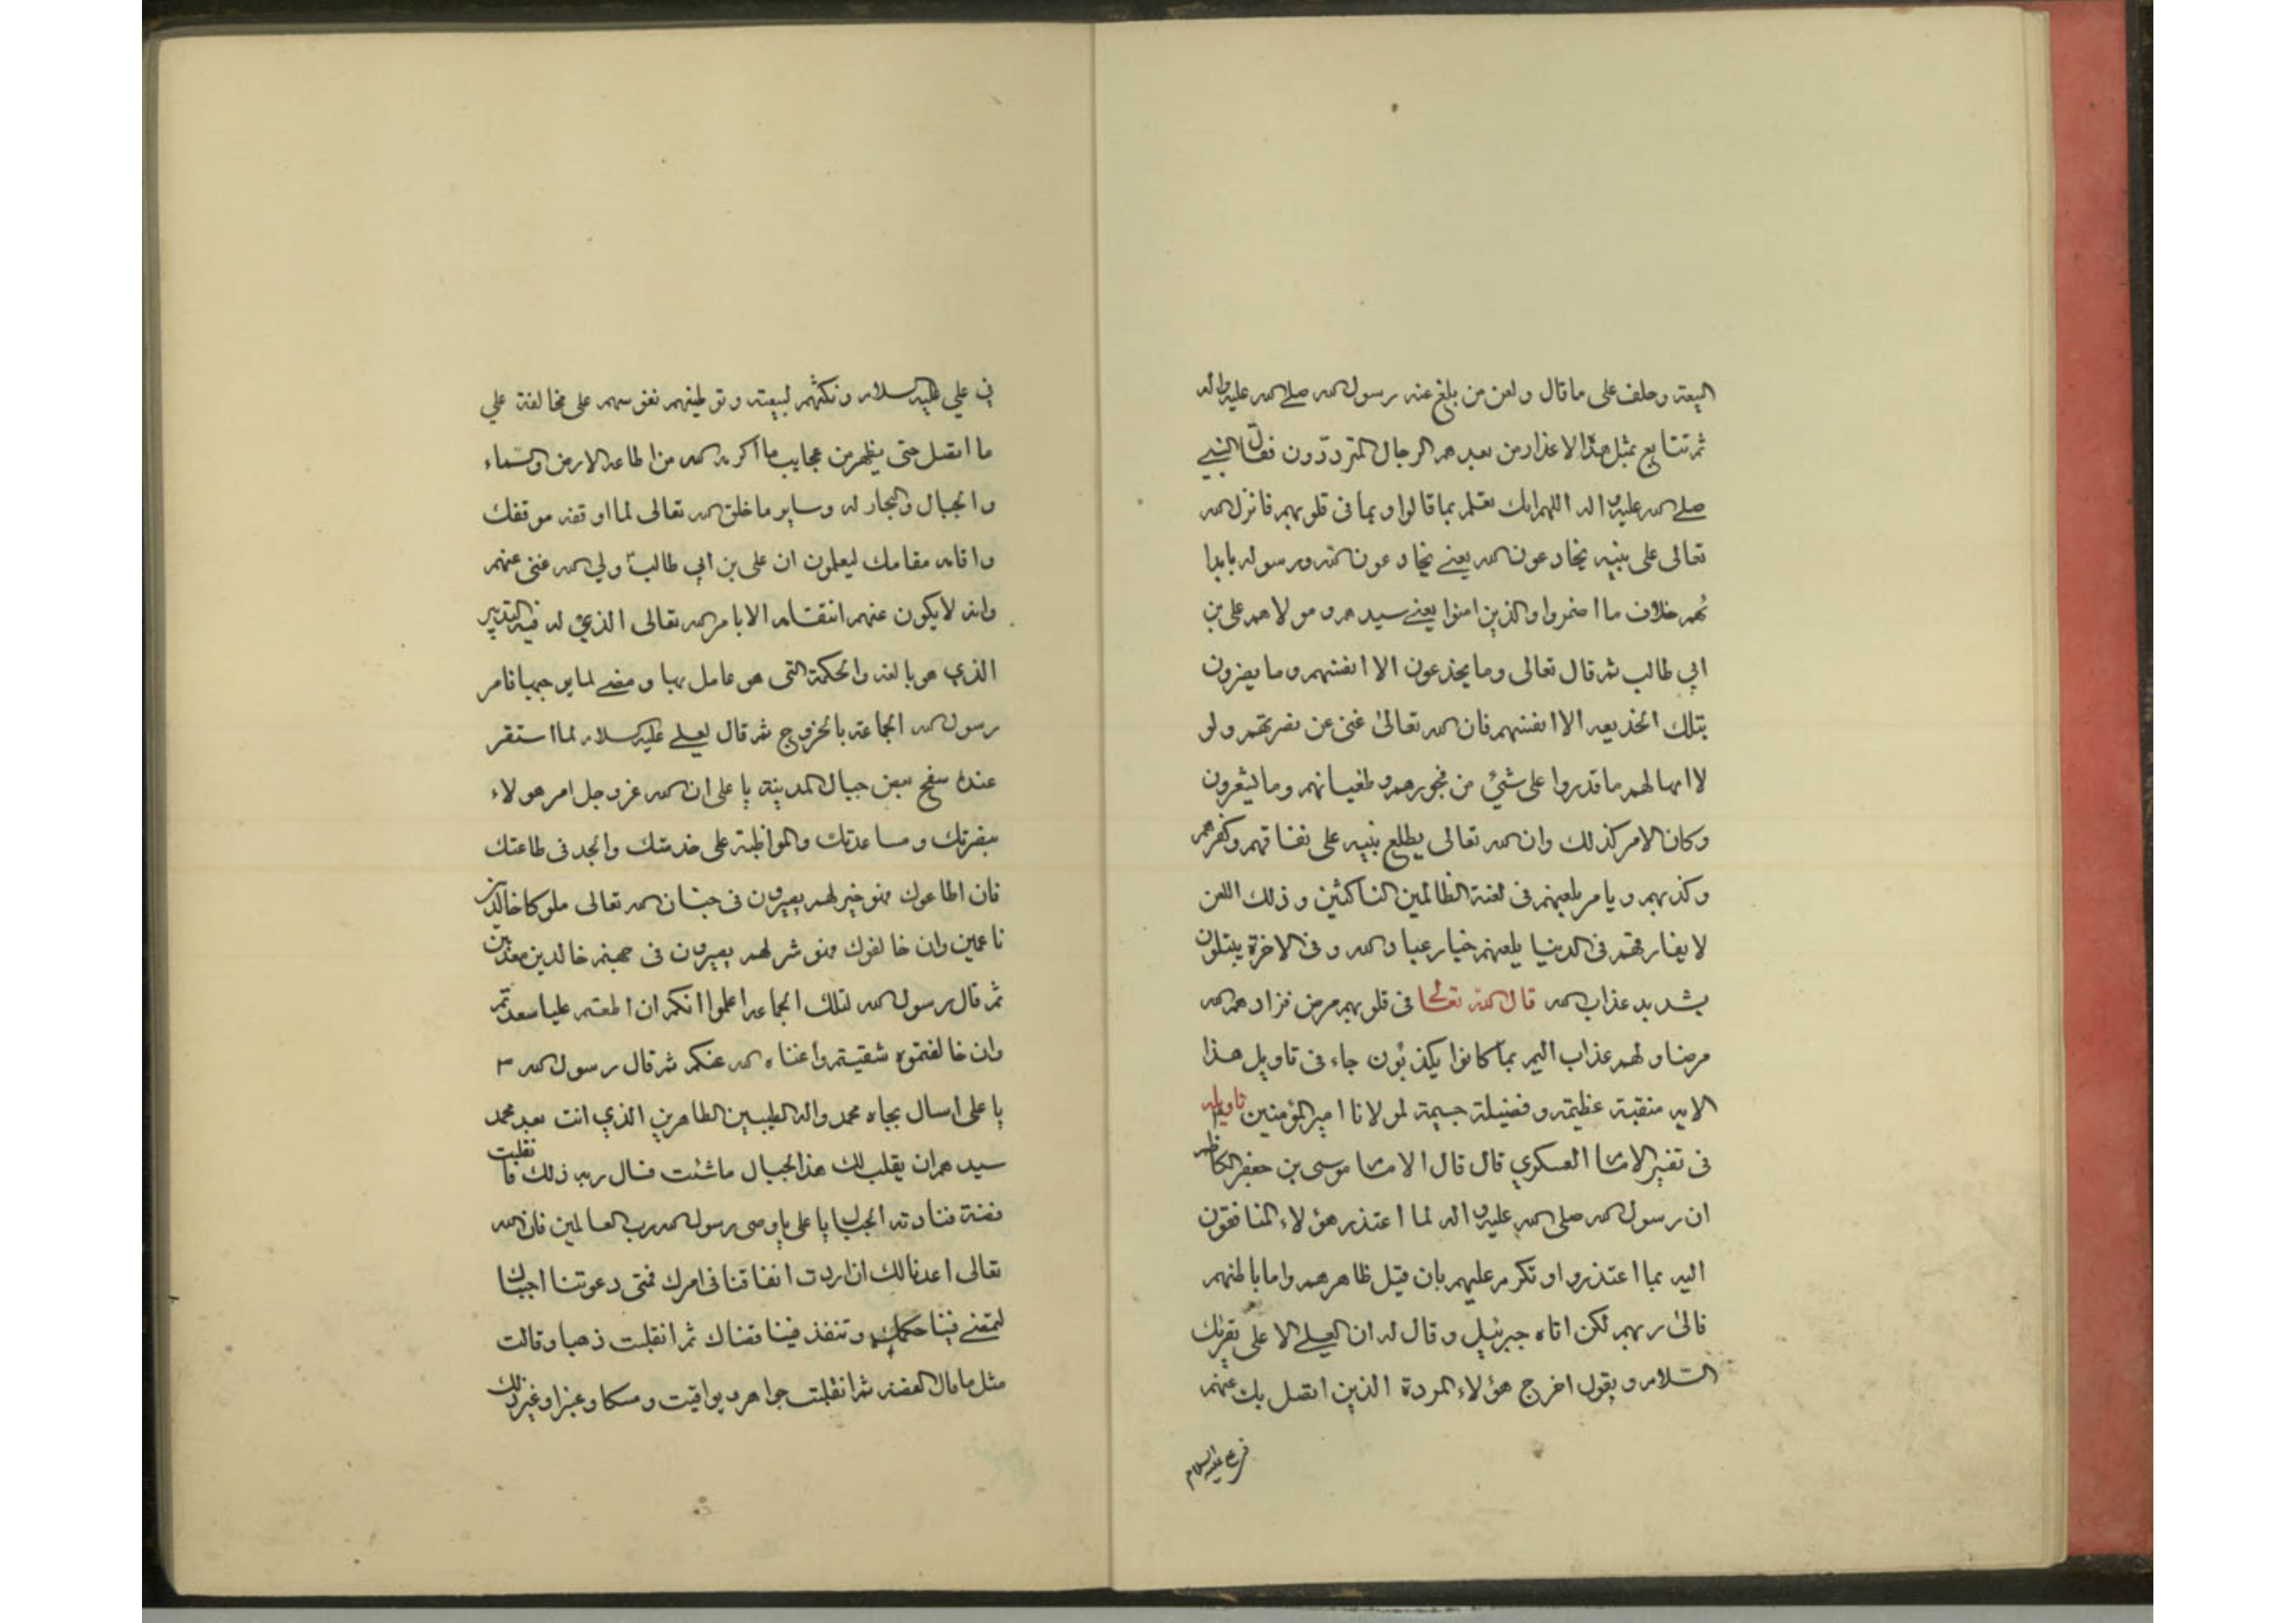 البيعة وحلف على ما قال ولعن من بلغ عنه رسول الله صلى الله عليه واله
ثم تتابع بمثل هذا الاعذار من بعدهم الرجال المتردّدون فقال النبي
صلى الله عليه واله اللهم انك تعلم بما قالوا وبما فى قلوبهم فانزل الله
تعالى على نبيه يخادعون الله يعنى يخادعون الله ورسوله بابدا
ئهم خلاف ما اضمروا والذين امنوا يعنى سيدهم ومولاهم على بن
ابي طالب ثم قال تعالى وما يخدعون الا انفسهم وما يضرون
بتلك الخديعه الا انفسهم فان الله تعالى غنى عن نصرتهم ولو
لا امهالهم ما قدروا على شئ من فجورهم وطغيانهم وما يشعرون
وكان الامر كذلك وان الله تعالى يطلع نبيه على نفاقهم وكفرهم
وكذبهم ويامر بلعنهم فى لعنة الظالمين الناكثين وذلك اللعن
لا يفارقهم فى الدنيا يلعنهم خيار عباد الله وفى الاخرة يبتلون
بشديد عذاب الله قال الله تعالى فى قلوبهم مرض فزادهم الله
مرضا ولهم عذاب اليم بما كانوا يكذبون جاء فى تاويل هذا
الايه منقبة عظيمة وفضيلة جسيمة لمولانا امير المؤمنين تاويله
فى تفسير الامام العسكري قال قال الامام موسى بن جعفر الكاظم
ان رسول الله صلى الله عليه واله لما اعتذر هؤلاء المنافقون
اليه بما اعتذروا وتكرم عليهم بان قبل ظاهرهم واما باطنهم
فالى ربهم لكن اتاه جبرئيل وقال له ان العلى الاعلى يقرئك
السّلام ويقول اخرج هؤلاء المردة الذين اتصل بك عنهم
فى على عليه السلام
فى علي عليه السلام ونكثهم لبيعته وتوطينهم نفوسهم على مخالفة علي
ما اتصل حتى يظهر من عجايب ما اكرمه الله من اطاعه الارض والسّماء
والجبال والبحار له وساير ما خلق الله تعالى لما اوقفه موقفك
واقامه مقامك ليعلمون ان على بن ابي طالب ولي الله غنى عنهم
وانه لا يكون عنهم انتقامه الا بامر الله تعالى الذي له فيه التدبير
الذي هو بالغه والحكمة التى هو عامل بها وممضى لما يوجبها فامر
رسول الله الجماعة بالخروج ثم قال لعلى عليه السلام لما استقر
عنده سفح بعض جبال المدينة يا على ان الله عز وجل امر هولاء
بنصرتك ومساعدتك والمواظبة على خدمتك والجد فى طاعتك
فان اطاعوك فهو خير لهم يصيرون فى جنان الله تعالى ملوكا خالدين
ناعمين وان خالفوك فهو شر لهم يصيرون فى جهنم خالدين معذبين
ثم قال رسول الله لتلك الجماعه اعلموا انكم ان اطعتم عليا سعدتم
وان خالفتموه شقيتم واغناه الله عنكم ثم قال رسول الله
يا على اسال بجاه محمد واله الطيبين الطاهرين الذي انت بعد محمد
سيدهم ان يقلب لك هذا الجبال ما شئت فسال ربه ذلك فانقلبت
فضة فنادته الجبال يا على يا وصى رسول رب العالمين فان الله
تعالى اعدنا لك ان اردت انفاقنا فى امرك فمتى دعوتنا اجبناك
لتمضى فينا حكمك وتنفذ فينا قضاك ثم انقلبت ذهبا وقالت
مثل ما قال الفضة ثم انقلبت جواهر ويواقيت ومسكا وعنبرا وغير ذلك